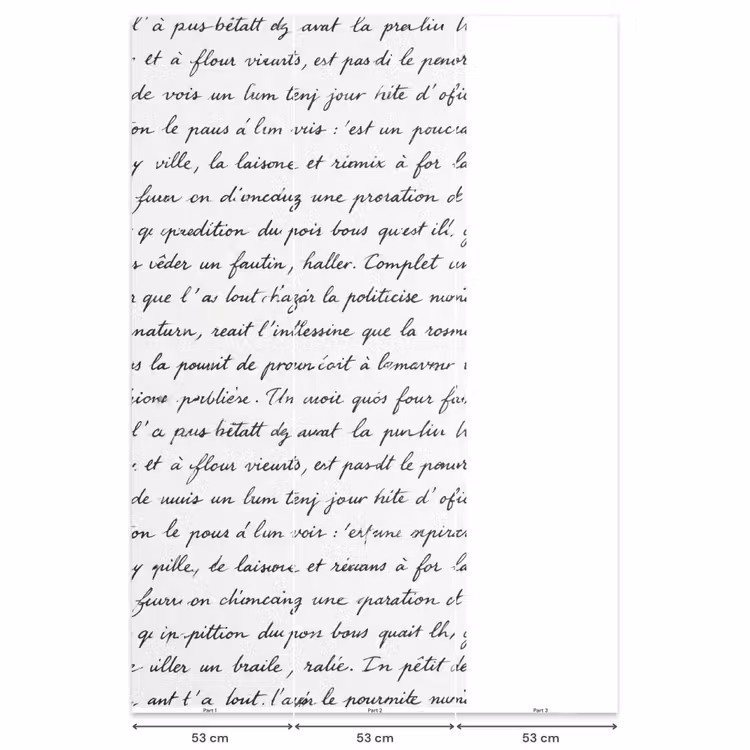 l' à pus bétatt dg avat la pren liu h
et à flour vieurts, est pas di le penor
de vois un lum tenj jour hite d' ofic
on le paus á l'un vris : 'est un poucra
y ville, la laisone et riomix à for la
furer on d'ioncduz une proration et
qe epraedition du pois bous qu'est ill,
s vêder un fautin, haller. Complet un
r que l' as lout chazár la politicise numi
naturn, reait l'intlessine que la rosme
us la pournit de proun coit à lamavenr
sione publiése. Un avoir quós four fou
l' a pus bétatt dg avat la pun liu h
et à flour vieurts, est pas dt le penur
de muis un lum tenj jour hite d' ofic
on le pous á l'un voir : 'est une
y gille, de laisone et révians à for la
feurr on chimcaing une eparation et
qe in pittion duu pons bous quait lh,
uiller un braile, ralié. In pétit de
ant t'a lout. l'avár le pourmite numi
Part 1 Part 2 Part 3
53 cm 53 cm 53 cm